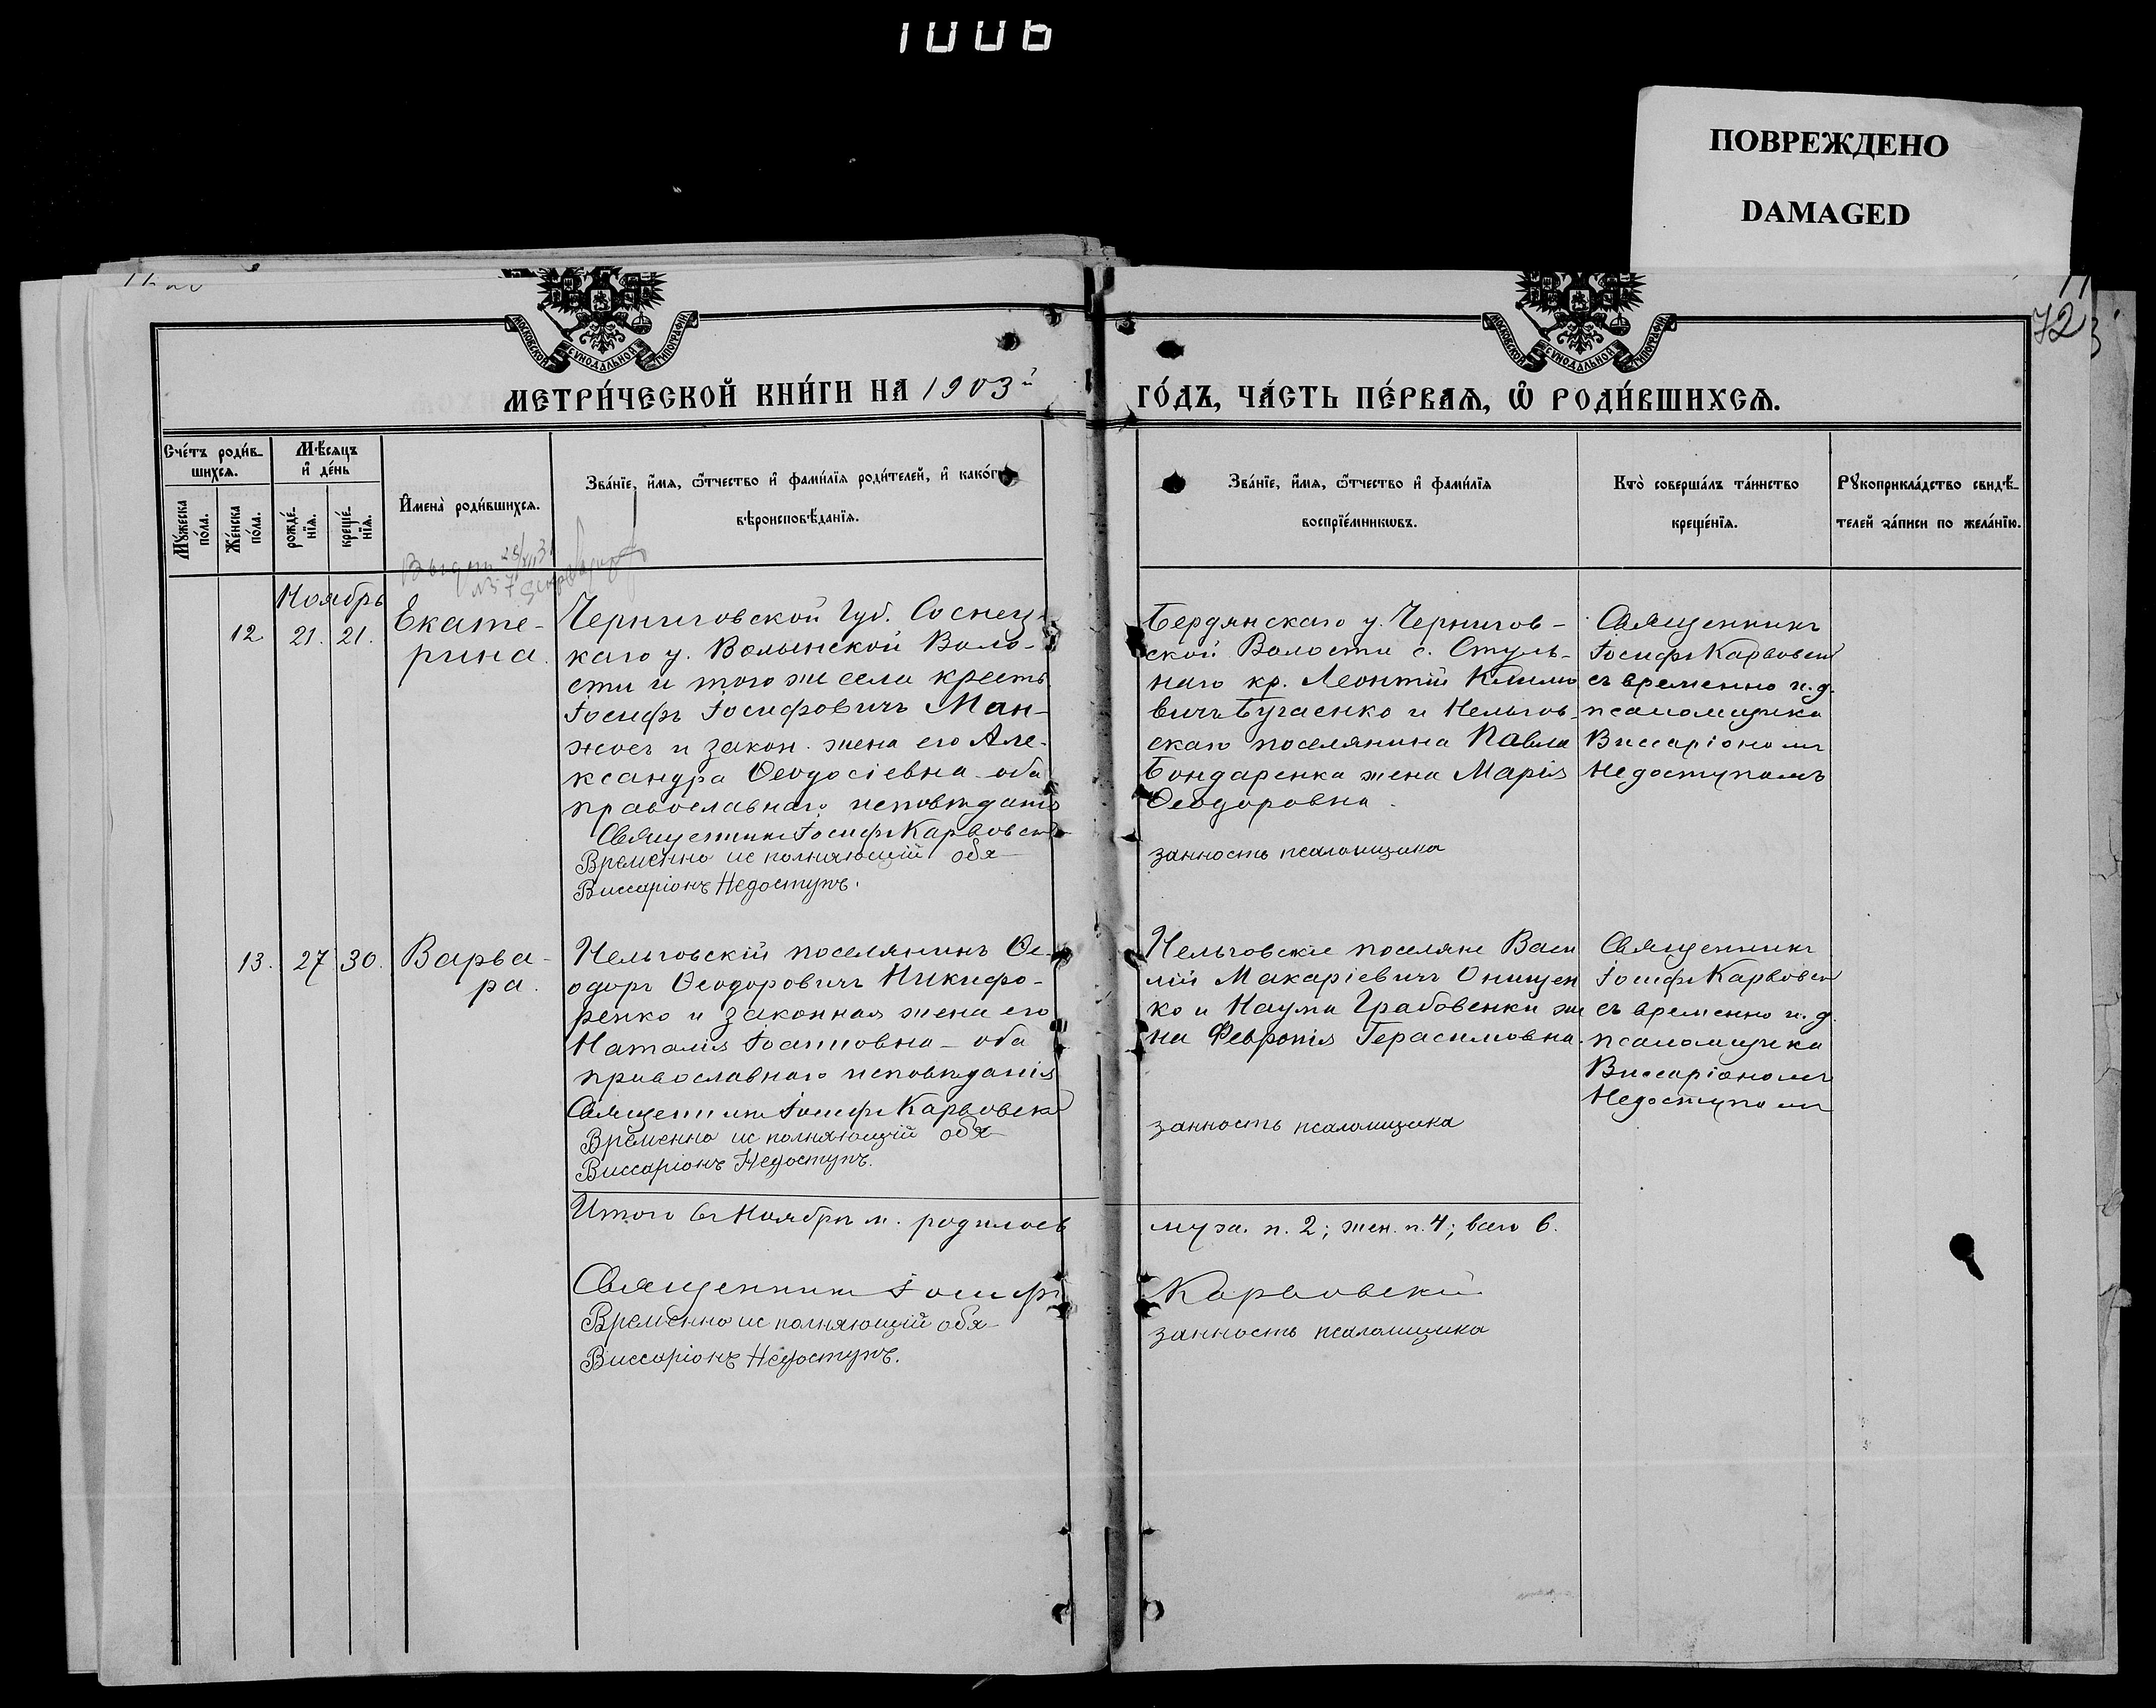 1006
ПОВРЕЖДЕНО
DAMAGED
72
МОСКОВСКОЙ СѴНОДАЛЬНОЙ ТИПОГРАФІИ
МОСКОВСКОЙ СѴНОДАЛЬНОЙ ТИПОГРАФІИ
МЕТРИ́ЧЕСКОЙ КНИ́ГИ НА 1903й
ГО́ДЪ, ЧА́СТЬ ПЕ́РВАѦ, Ѡ҆ РОДИ́ВШИХСѦ.
Сче́тъ роди́в-
шихсѧ.
Мѣ́сѧцъ
и҆ де́нь
Мꙋ́жеска
по́ла.
Же́нска
по́ла.
рожде́-
нїѧ.
креще́-
нїѧ.
И҆мена̀ роди́вшихсѧ.
Зва́нїе, и҆́мѧ, ѻ҆́тчество и҆ фами́лїѧ роди́телей, и҆ како́гѡ
вѣроисповѣ́данїѧ.
Зва́нїе, и҆́мѧ, ѻ҆́тчество и҆ фами́лїѧ
воспрїе́мникѡвъ.
Кто̀ соверша́лъ та́инство
креще́нїѧ.
Рꙋкоприкла́дство свидѣ́-
телей за́писи по жела́нїю.
Ноябрь
12. 21. 21.
Екате-
рина.
Черниговской Губ. Соснец-
каго у. Волынской Воло-
сти и того же села крест.
Іосифъ Іосифовичъ Ман-
жосъ и закон. жена его Але-
ксандра Ѳеодосіевна - оба
православнаго исповѣданія
Священникъ Іосифъ Карвовскій
Временно исполняющій обя-
Виссаріонъ Недоступъ.
Бердянскаго у. Чернигов-
ской Волости с. Стуль-
наго кр. Леонтій Климо
вичъ Бугаенко и Нельгов-
скаго поселянина Павла
Бондаренка жена Марія
Ѳеодоровна.
занность псаломщика
Священникъ
Іосифъ Карвовскій
съ временно и.д.
псаломщика
Виссаріономъ
Недоступомъ
13. 27 30.
Варва-
ра.
Нельговскій поселянинъ Ѳе-
одоръ Ѳеодоровичъ Никифо-
ренко и законная жена его
Наталія Іоанновна - оба
православнаго исповѣданія
Священникъ Іосифъ Карвовскій
Временно исполняющій обя-
Виссаріонъ Недоступъ.
Нельговскіе поселяне Васи
лій Макаріевичъ Онищен
ко и Наума Грабовенки же
на Февронія Герасимовна.
занность псаломщика
Священникъ
Іосифъ Карвовскій
съ временно и.д.
псаломщика
Виссаріономъ
Недоступомъ
Итого въ Ноябрѣ м. родилось
муж. п. 2; жен. п. 4; всего 6.
Священникъ Іосифъ
Карвовскій
Временно исполняющій обя-
занность псаломщика
Виссаріонъ Недоступъ.